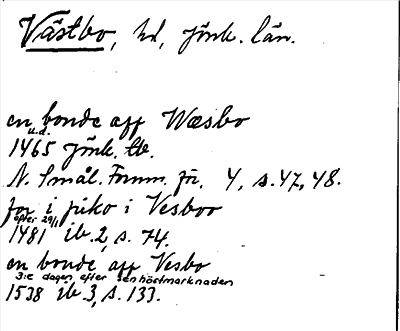 Västbo, hd, Jönk. län.
en bonde aff Wæsbo
u.d.
1465 Jönk. tb.
N. Smål. Fornm. för. 4, s. 47, 48.
for i fiko i Vesboo
efter 29/1
1481 ib. 2, s. 74.
en bonde aff Vesbo
3:e dagen efter henhöstmarknaden
1538 ib. 3, s. 133.